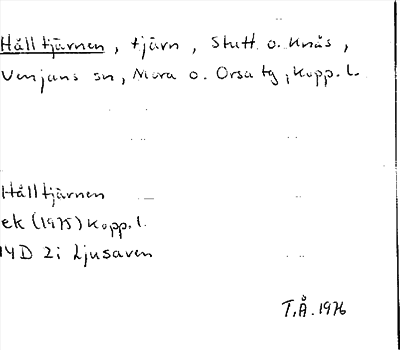 Hålltjärnen, tjärn, Stutt o. Knås,
Venjans sn, Mora o. Orsa tg, Kopp. l.
Hålltjärnen
ek (1975) Kopp. l.
14D 2i Ljusaven
T.Å. 1976